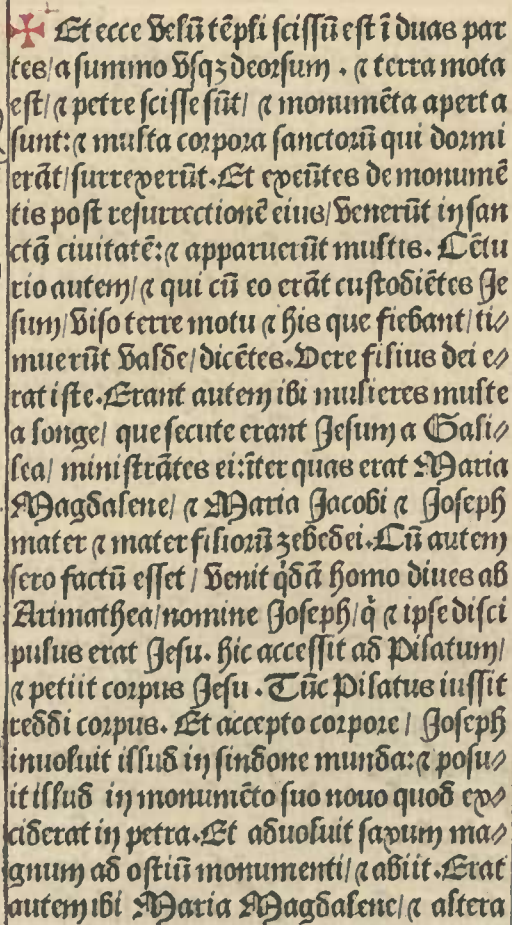 ✠ Et ecce velū tēpli scissū est ī duas par
tes/ a summo vsqꝫ deorsum . ⁊ terra mota
est/ ⁊ petre scisse sūt/ ⁊ monumēta aperta
sunt: ⁊ multa corpora sanctorū qui dormi
erāt/ surrexerūt. Et exeūtes de monumē
tis post resurrectionē eius/ venerūt in san
ctā ciuitatē: ⁊ apparuerūt multis. Cētu
rio autem/ ⁊ qui cū eo erāt custodiētes Je
sum/ viso terre motu ⁊ his que fiebant/ ti⸗
muerūt valde/ dicētes. Vere filius dei e⸗
rat iste. Erant autem ibi mulieres multe
a longe/ que secute erant Jesum a Gali⸗
lea/ ministrātes ei: īter quas erat Maria
Magdalene/ ⁊ Maria Jacobi ⁊ Joseph
mater ⁊ mater filiorū zebedei. Cū autem
sero factū esset / venit q̇dā homo diues ab
Arimathea/ nomine Joseph/ q̇ ⁊ ipse disci
pulus erat Jesu. hic accessit ad Pilatum/
⁊ petiit corpus Jesu . Tūc Pilatus iussit
reddi corpus. Et accepto corpore / Joseph
inuoluit illud in sindone munda: ⁊ posu⸗
it illud in monumēto suo nouo quod ex⸗
ciderat in petra. Et aduoluit saxum ma⸗
gnum ad ostiū monumenti/ ⁊ abiit. Erat
autem ibi Maria Magdalene/ ⁊ altera